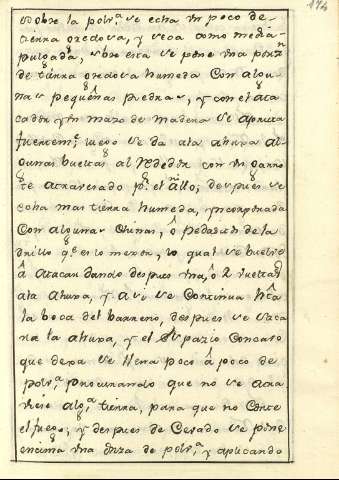 174
sobre la polv.ª se echa un poco de
tierra gredosa, y seca como media
pulgada, sobre esta se pone una porz.n
de tierra gredosa humeda con algu
nas pequeñas piedras, y con el ata
cador y un mazo de madera se aprieta
fuertem.te luego se da ala ahuxa al-
gunas bueltas al rededor con un garro
te atravesado p.r el anillo, despues se
echa mas tierra humeda, yncorporada
con algunas chinas, ô pedasitos de la
drillo q.e es lo menor, lo qual se buelve
â atacar dando despues una, ô 2 bueltas
ala ahuxa, y asi se continua hta
la boca del barreno, despues se saca
na la ahuxa, y el espazio concabo
que dexa se llena poco â poco de
polv.ª procurando que no se atra
viese alg.ª tierra, para que no corte
el fuego; y despues de Cevado se pone
encima una onza de polv.ª y aplicando